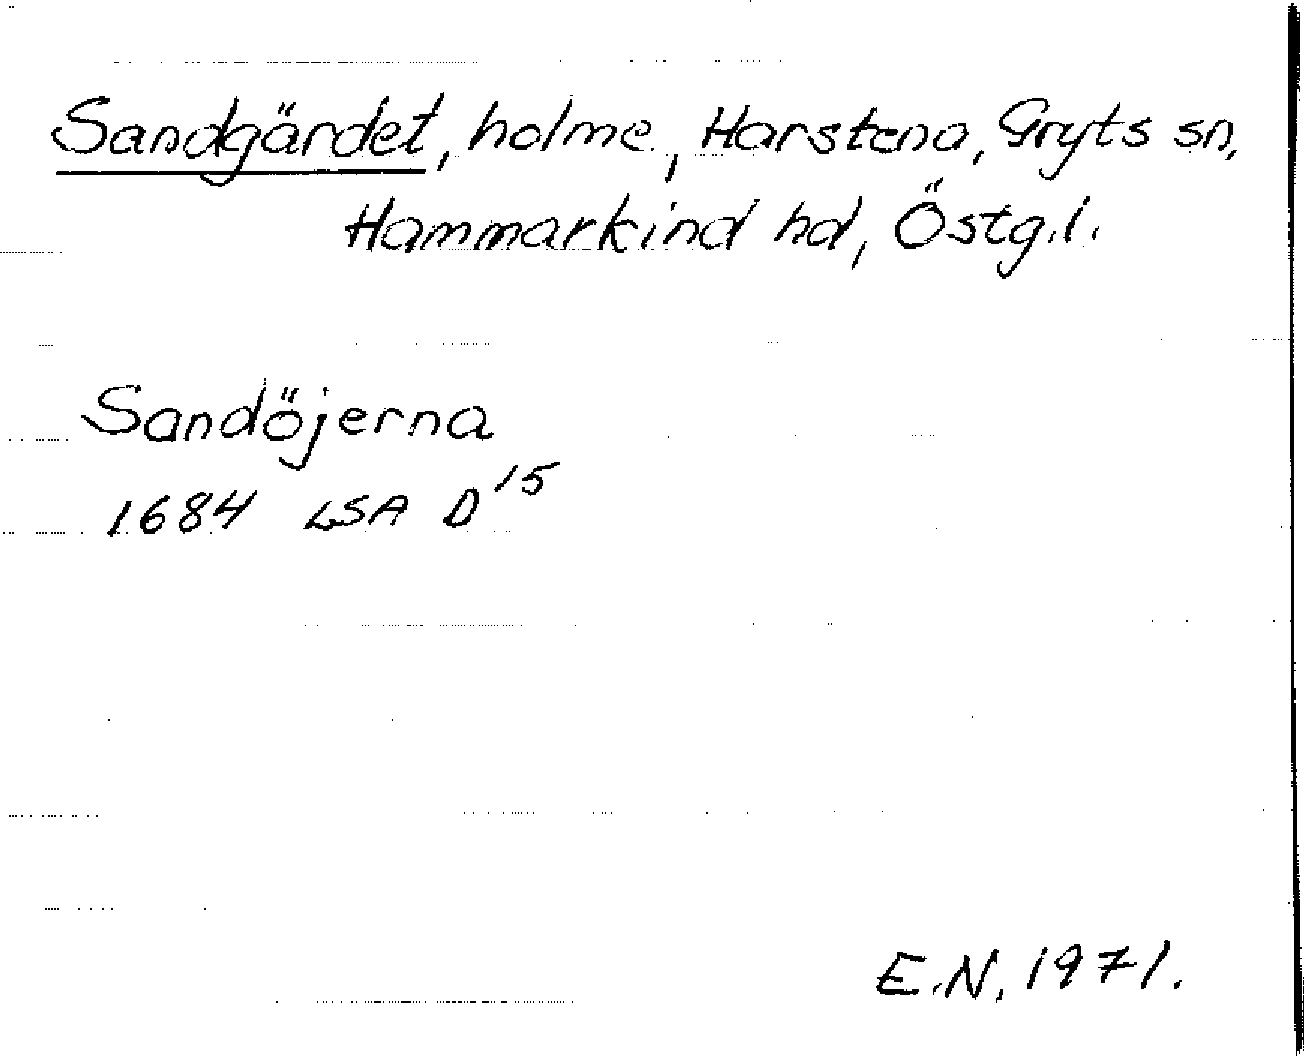 Sandgärdet, holme, Harstena, Gryts sn,
Hammarkind hd, Östg.l.
Sandöjerna
1684 LSA D15
E.N, 1971.